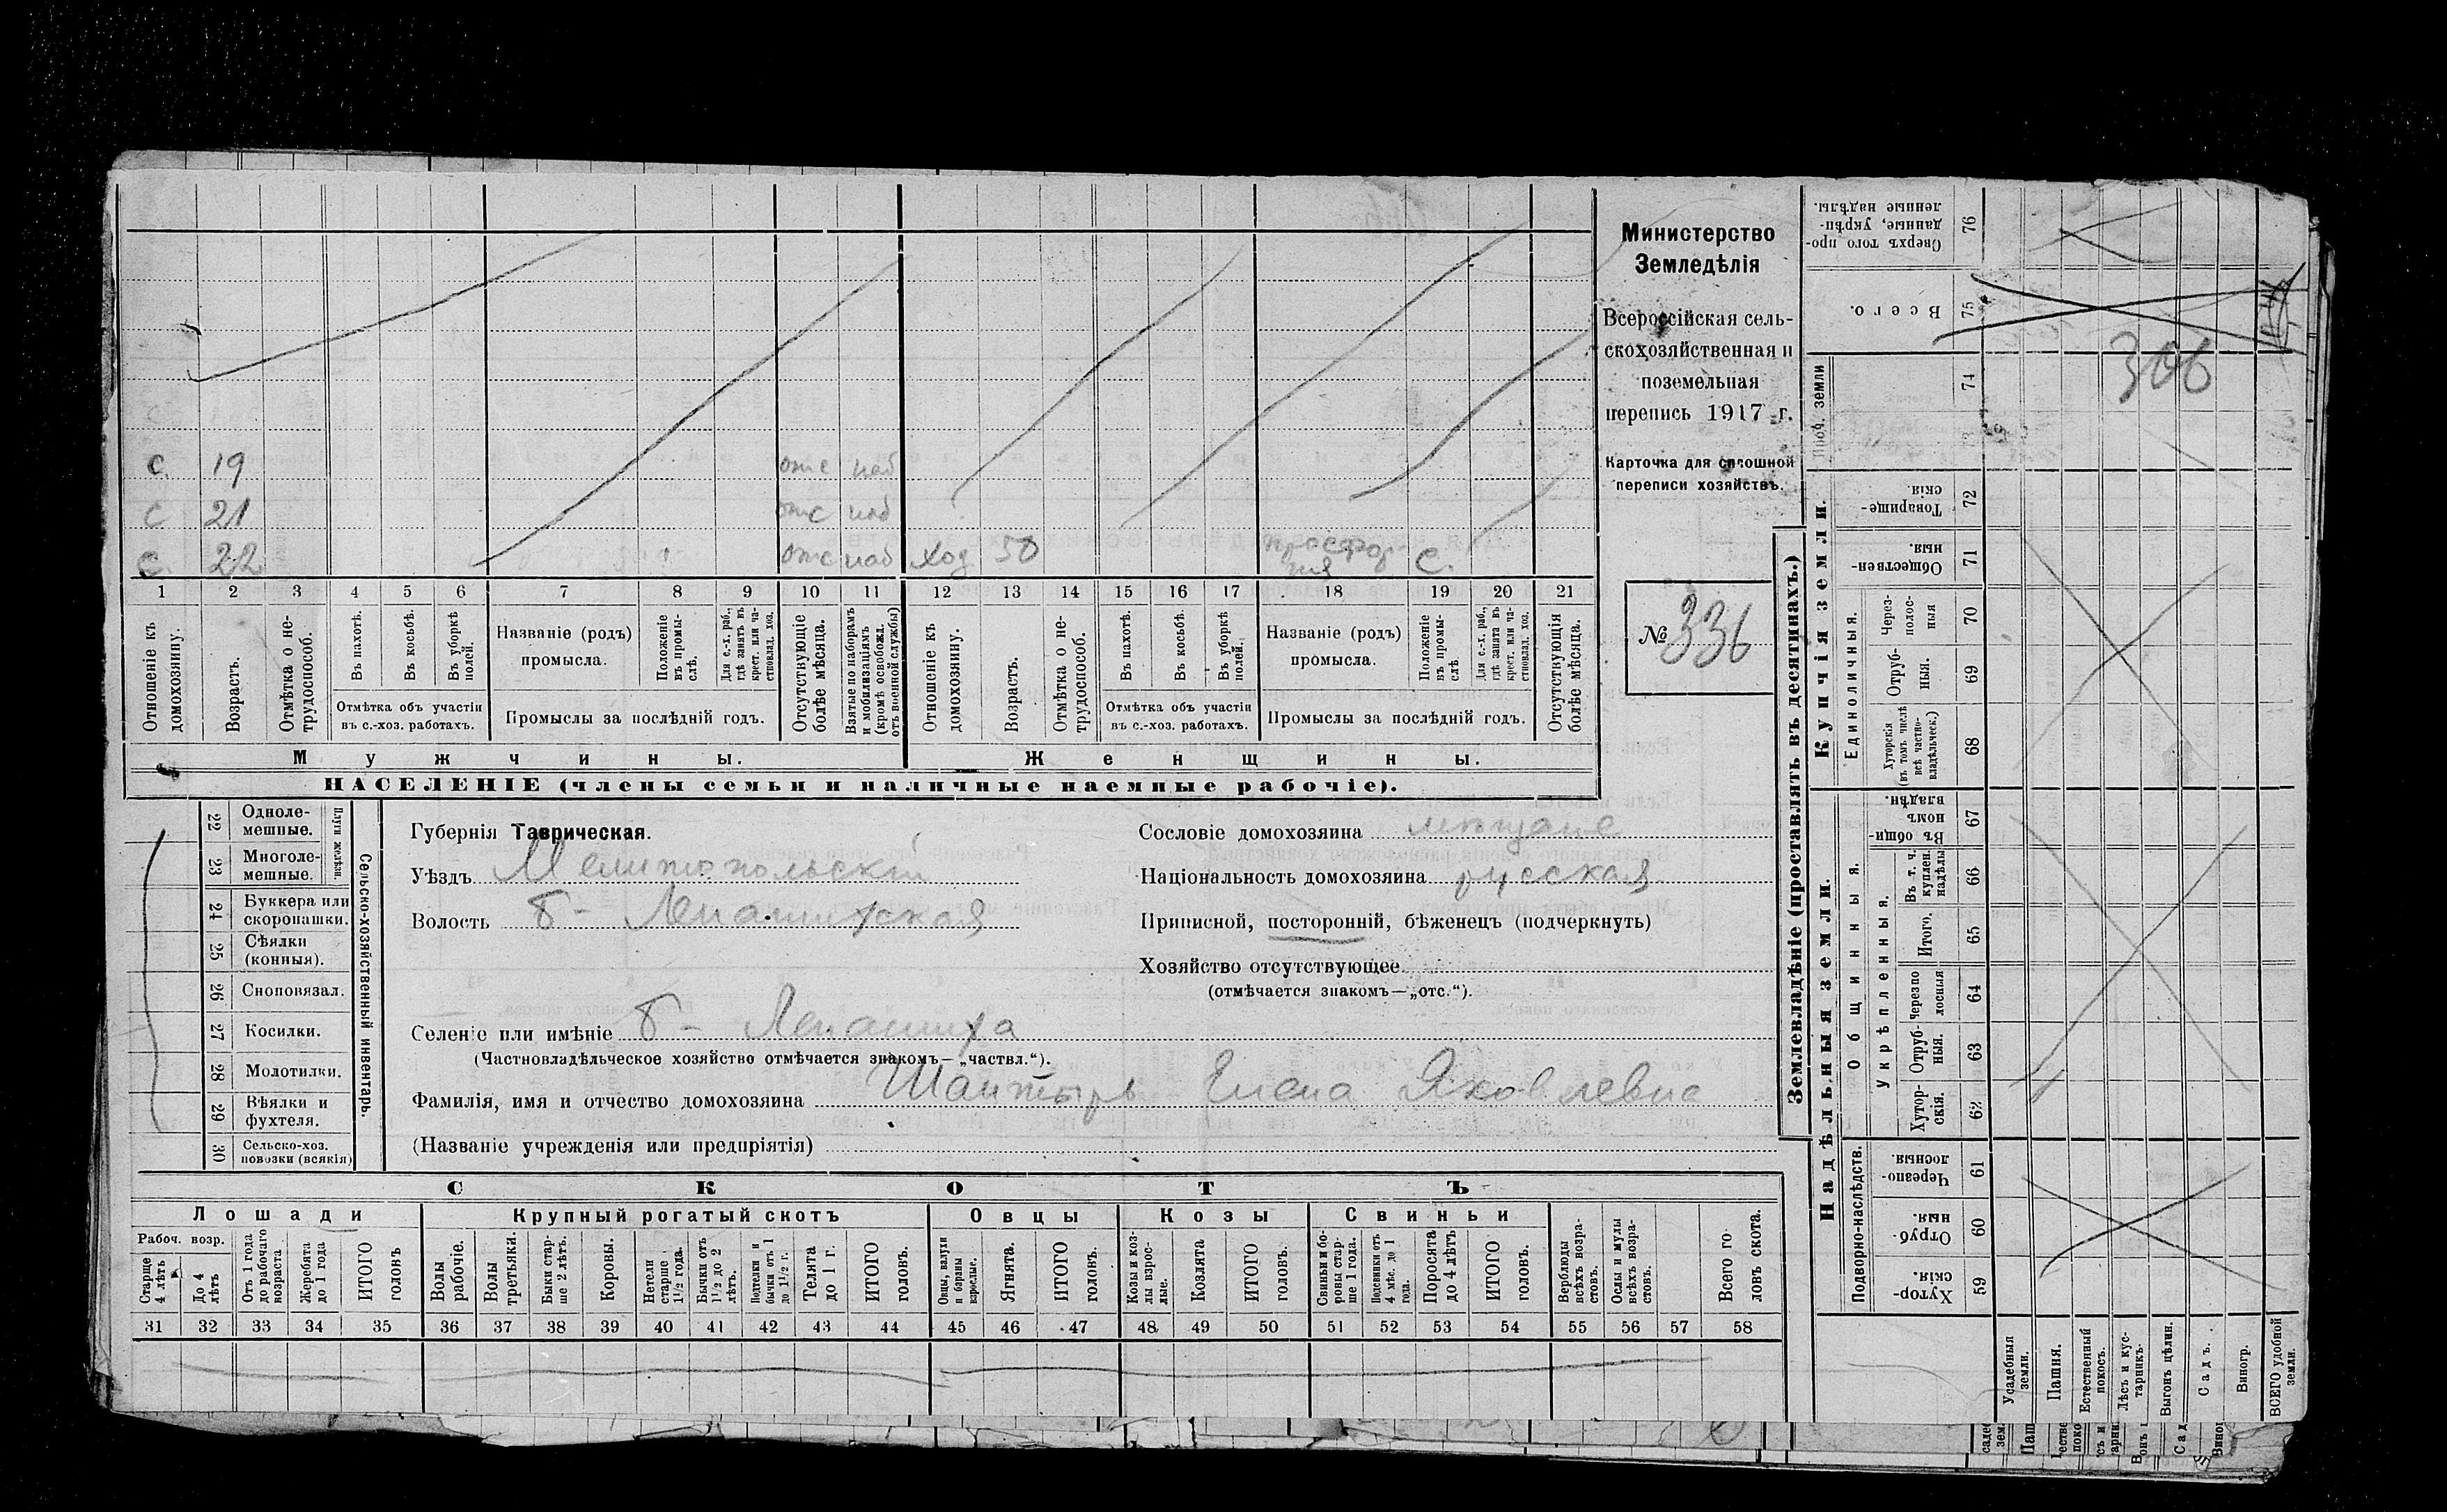 Министерство
Земледѣлія
Всероссійская сель-
скохозяйственная и
поземельная
перепись 1917 г.
Карточка для сплошной
переписи хозяйствъ.
№ 336
с. 19 отс наб
с 21 отс наб
с. 22 отс наб хоз 50 просфор- с.
ня
1 2 3 4 5 6 7 8 9 10 11 12 13 14 15 16 17 18 19 20 21
Отношеніе къ домохозяину.
Возрастъ.
Отмѣтка о не-трудоспособ.
Въ пахотѣ.
Въ косьбѣ.
Въ уборкѣ полей.
Отмѣтка объ участіи
въ с.-хоз. работахъ.
Названіе (родъ)
промысла.
Положеніе въ промы-слѣ.
Для с.-х. раб., гдѣ занятъ въ крест. или ча-стновлад. хоз.
Промыслы за послѣдній годъ.
Отсутствующіе болѣе мѣсяца.
Взятые по наборамъ и мобилизаціямъ (кромѣ освобожд. отъ военной службы)
Отношеніе къ домохозяину.
Возрастъ.
Отмѣтка о не-трудоспособ.
Въ пахотѣ.
Въ косьбѣ.
Въ уборкѣ полей.
Отмѣтка объ участіи
въ с.-хоз. работахъ.
Названіе (родъ)
промысла.
Положеніе въ промы-слѣ
Для с.-х. раб., гдѣ занята въ крест. или ча-стновлад. хоз.
Промыслы за послѣдній годъ.
Отсутствующія болѣе мѣсяца.
Мужчины.
Женщины.
НАСЕЛЕНІЕ (члены семьи и наличные наемные рабочіе).
22 Одноле-мешные.
23 Многоле-мешные.
Плуги желѣзн.
24 Буккера или скоропашки.
25 Сѣялки (конныя).
26 Сноповязал.
27 Косилки.
28 Молотилки.
29 Вѣялки и фухтеля.
30 Сельско-хоз. повозки (всякія)
Сельско-хозяйственный инвентарь.
Губернія Таврическая.
Уѣздъ Мелитопольскій
Волость Б- Лепатихская
Селеніе или имѣніе Б- Лепатиха
(Частновладѣльческое хозяйство отмѣчается знакомъ—„частвл.“).
Фамилія, имя и отчество домохозяина Шантырь Елена Яковлевна
(Названіе учрежденія или предпріятія)
Сословіе домохозяина мѣщане
Національность домохозяина русская
Приписной, посторонній, бѣженецъ (подчеркнуть)
Хозяйство отсутствующее
(отмѣчается знакомъ—„отс.“).
СКОТЪ
Лошади
Рабоч. возр.
Старше 4 лѣтъ
До 4 лѣтъ
Отъ 1 года до рабочаго возраста
Жеребята до 1 года
ИТОГО головъ
Крупный рогатый скотъ
Волы рабочіе.
Волы третьяки.
Быки стар-ше 2 лѣтъ.
Коровы.
Нетели старше 1½ года.
Бычки отъ 1½ до 2 лѣтъ.
Подтелки и бычки отъ 1 до 1½ г.
Телята до 1 г.
ИТОГО головъ.
Овцы
Овцы, валухи и бараны взрослые.
Ягнята.
ИТОГО головъ.
Козы
Козы и коз-лы взрос-лые.
Козлята
ИТОГО головъ.
Свиньи
Свиньи и бо-ровы стар-ше 1 года.
Подсвинки отъ 4 мѣс. до 1 года.
Поросята до 4 лѣтъ
ИТОГО головъ.
Верблюды всѣхъ возра-стовъ.
Ослы и мулы всѣхъ возра-стовъ.
Всего го-ловъ скота.
31 32 33 34 35 36 37 38 39 40 41 42 43 44 45 46 47 48 49 50 51 52 53 54 55 56 57 58
Землевладѣніе (проставлять въ десятинахъ.)
Надѣльныя земли.
Подворно-наслѣдств.
Хутор-скія. 59
Отруб-ныя. 60
Черезпо-лосныя. 61
Общинныя.
Укрѣпленныя.
Хутор-скія. 62
Отруб-ныя. 63
Черезпо-лосныя 64
Итого. 65
Въ т. ч. куплен. надѣлы 66
Въ общин-номъ владѣн. 67
Купчія земли.
Единоличныя.
Хуторскія (въ томъ числѣ всѣ частно-владѣльческ.) 68
Отруб-ныя. 69
Через-полос-ныя 70
Обществен-ныя. 71
Товарище-скія 72
Проч. земли
74
Всего. 75
Сверхъ того про-данные, укрѣп-ленные надѣлы. 76
306
Усадебныя земли.
Пашня.
Естественный покосъ.
Лѣсъ и кус-тарникъ.
Выгонъ цѣлин.
Садъ.
Виногр.
ВСЕГО удобной земли.